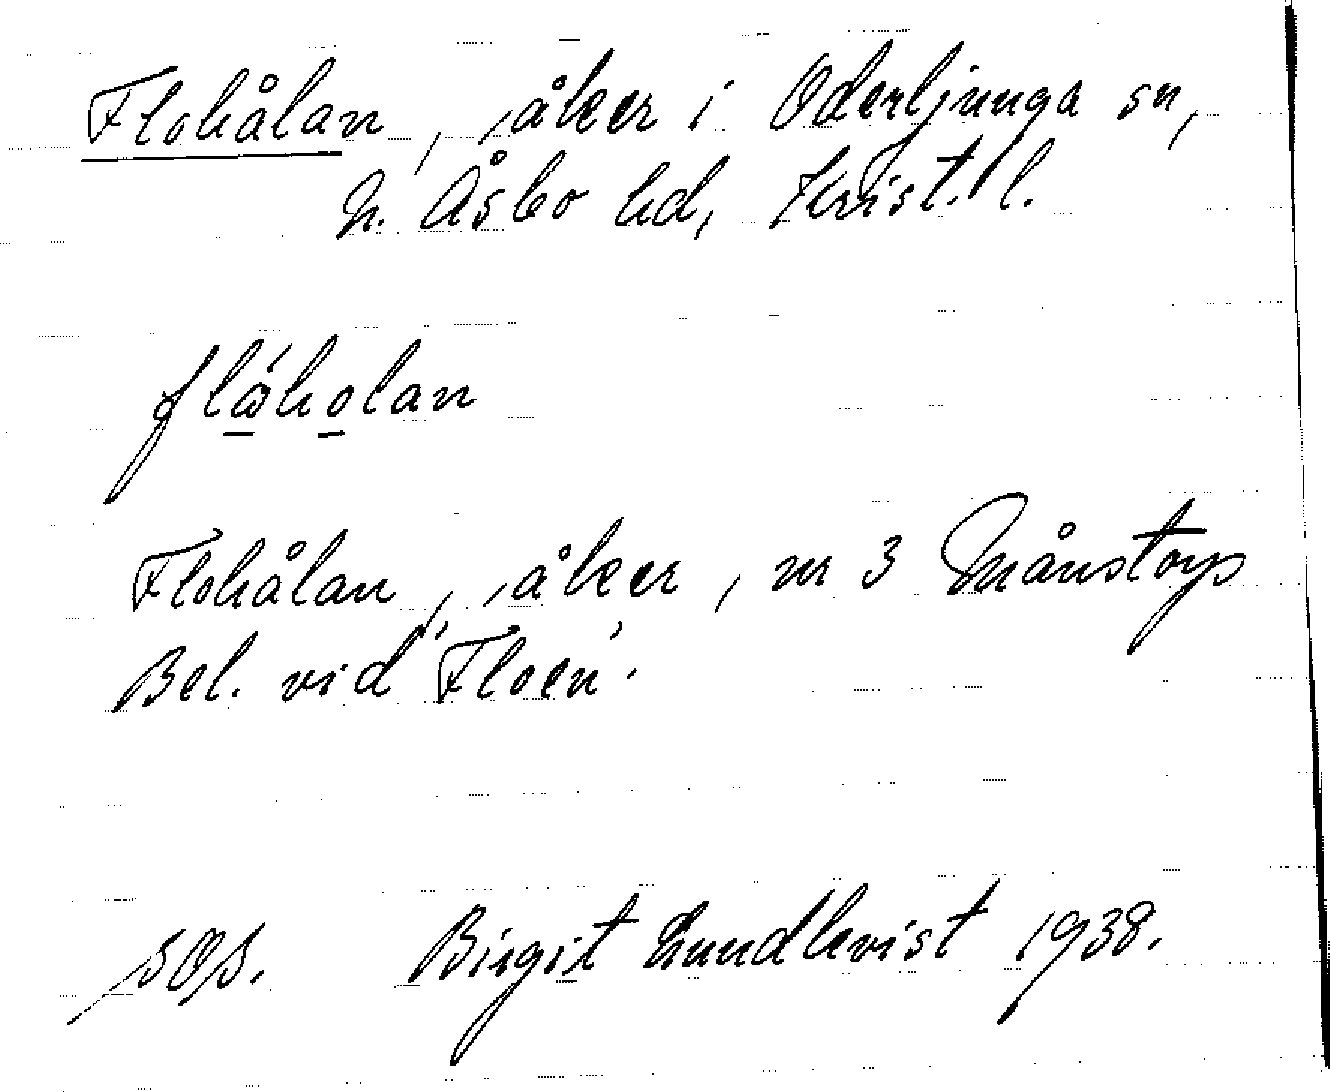 Flohålan, åker i Oderljunga sn,
N. Åsbo hd, Krist. l.
flåholan
Flohålan, åker, nr 3 Månstorp
Bel. vid "Floen".
SOS. Birgit Lundkvist 1938.